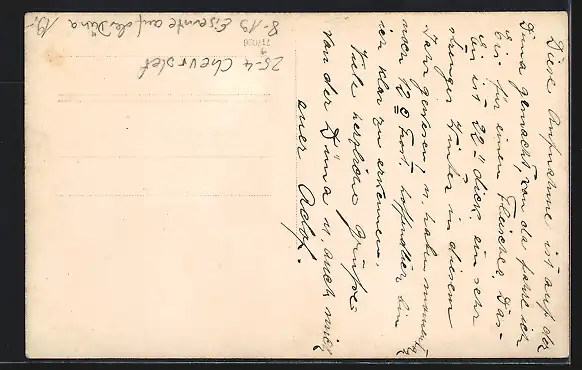 Diese Aufnahme ist auf der
Düna gemacht, von da fahre ich
Eis für einen Fleischer. Das
Eis ist 22" dick, ein sehr
strenger Winter in diesem
Jahr gewesen, u. haben
noch 12 0 Frost. hoffentlich bin
ich klar zu erkennen.
Viele herzliche Grüße
von der Düna u. auch mich
euer Adolf.
8-13 Eisernte auf der Düna 19,-
25-4 Chevrolet